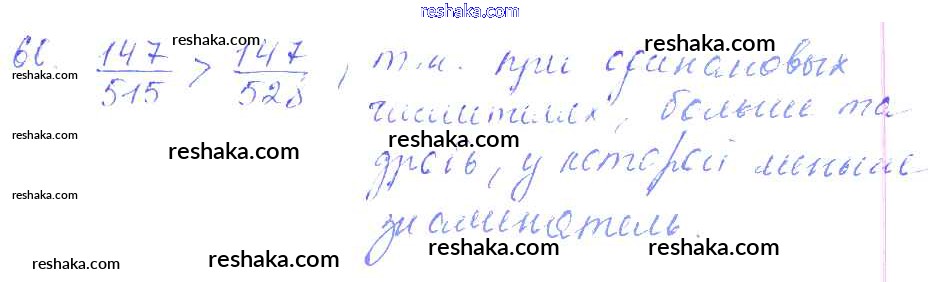 reshaka.com
66. 147/515 > 147/528, т.к. при одинаковых
числителях, больше та
дробь, у которой меньше
знаменатель.
reshaka.com
reshaka.com
reshaka.com
reshaka.com
reshaka.com
reshaka.com
reshaka.com
reshaka.com
reshaka.com
reshaka.com
reshaka.com
reshaka.com